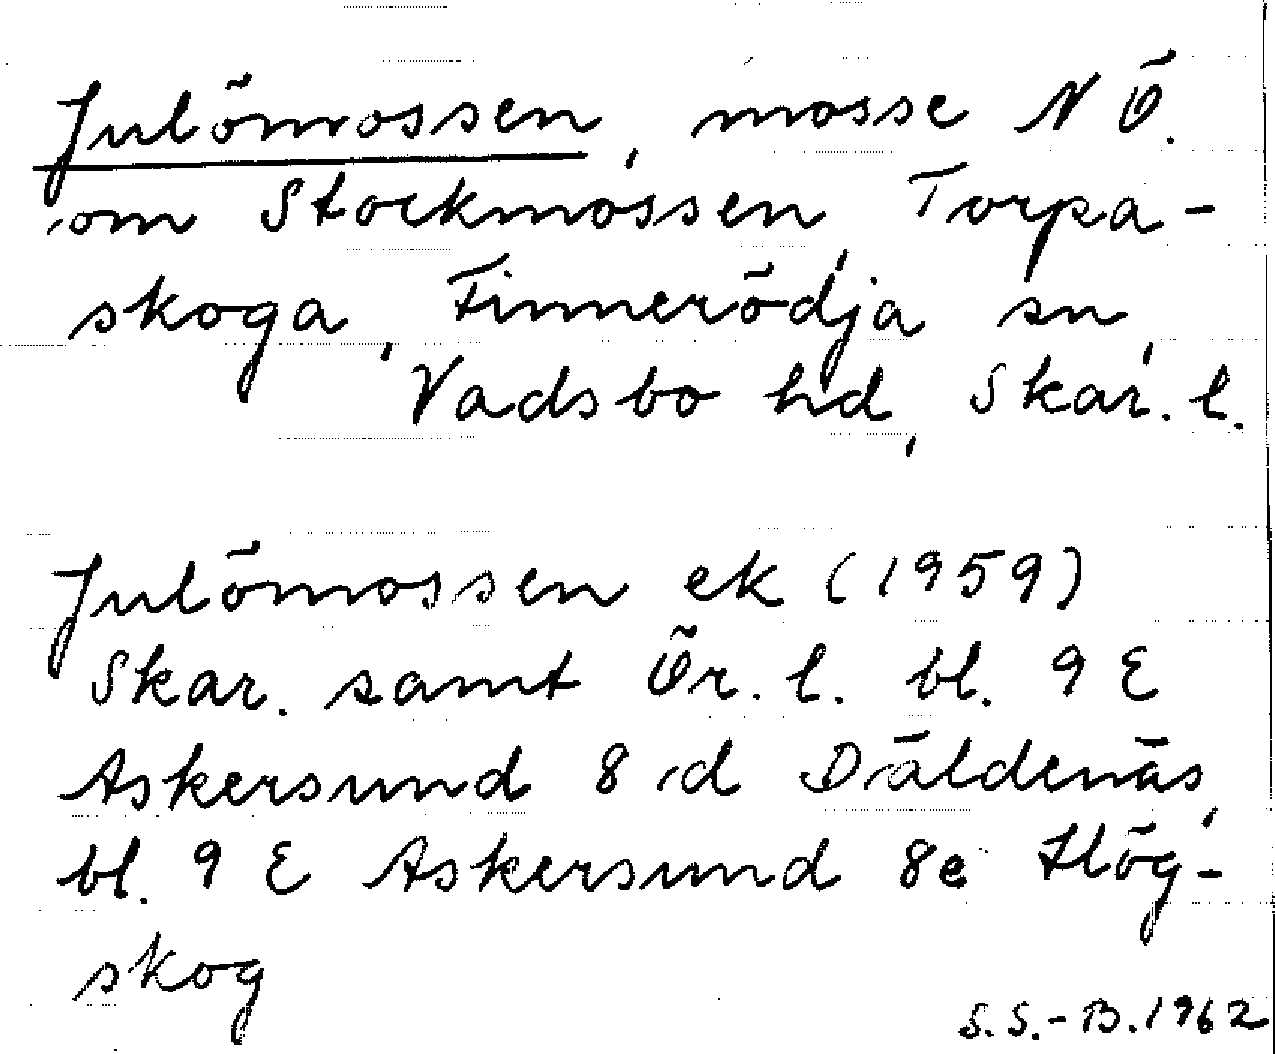 Julömossen, mosse N Ö.
om Stockmossen, Torpa-
skoga, Finnerödja sn,
Vadsbo hd, Skar. l.
Julömossen ek (1959)
Skar. samt Ör. l. bl. 9 E
Askersund 8 d Däldenäs,
bl. 9 E Askersund 8e Hög-
skog
S.S.-B. 1962